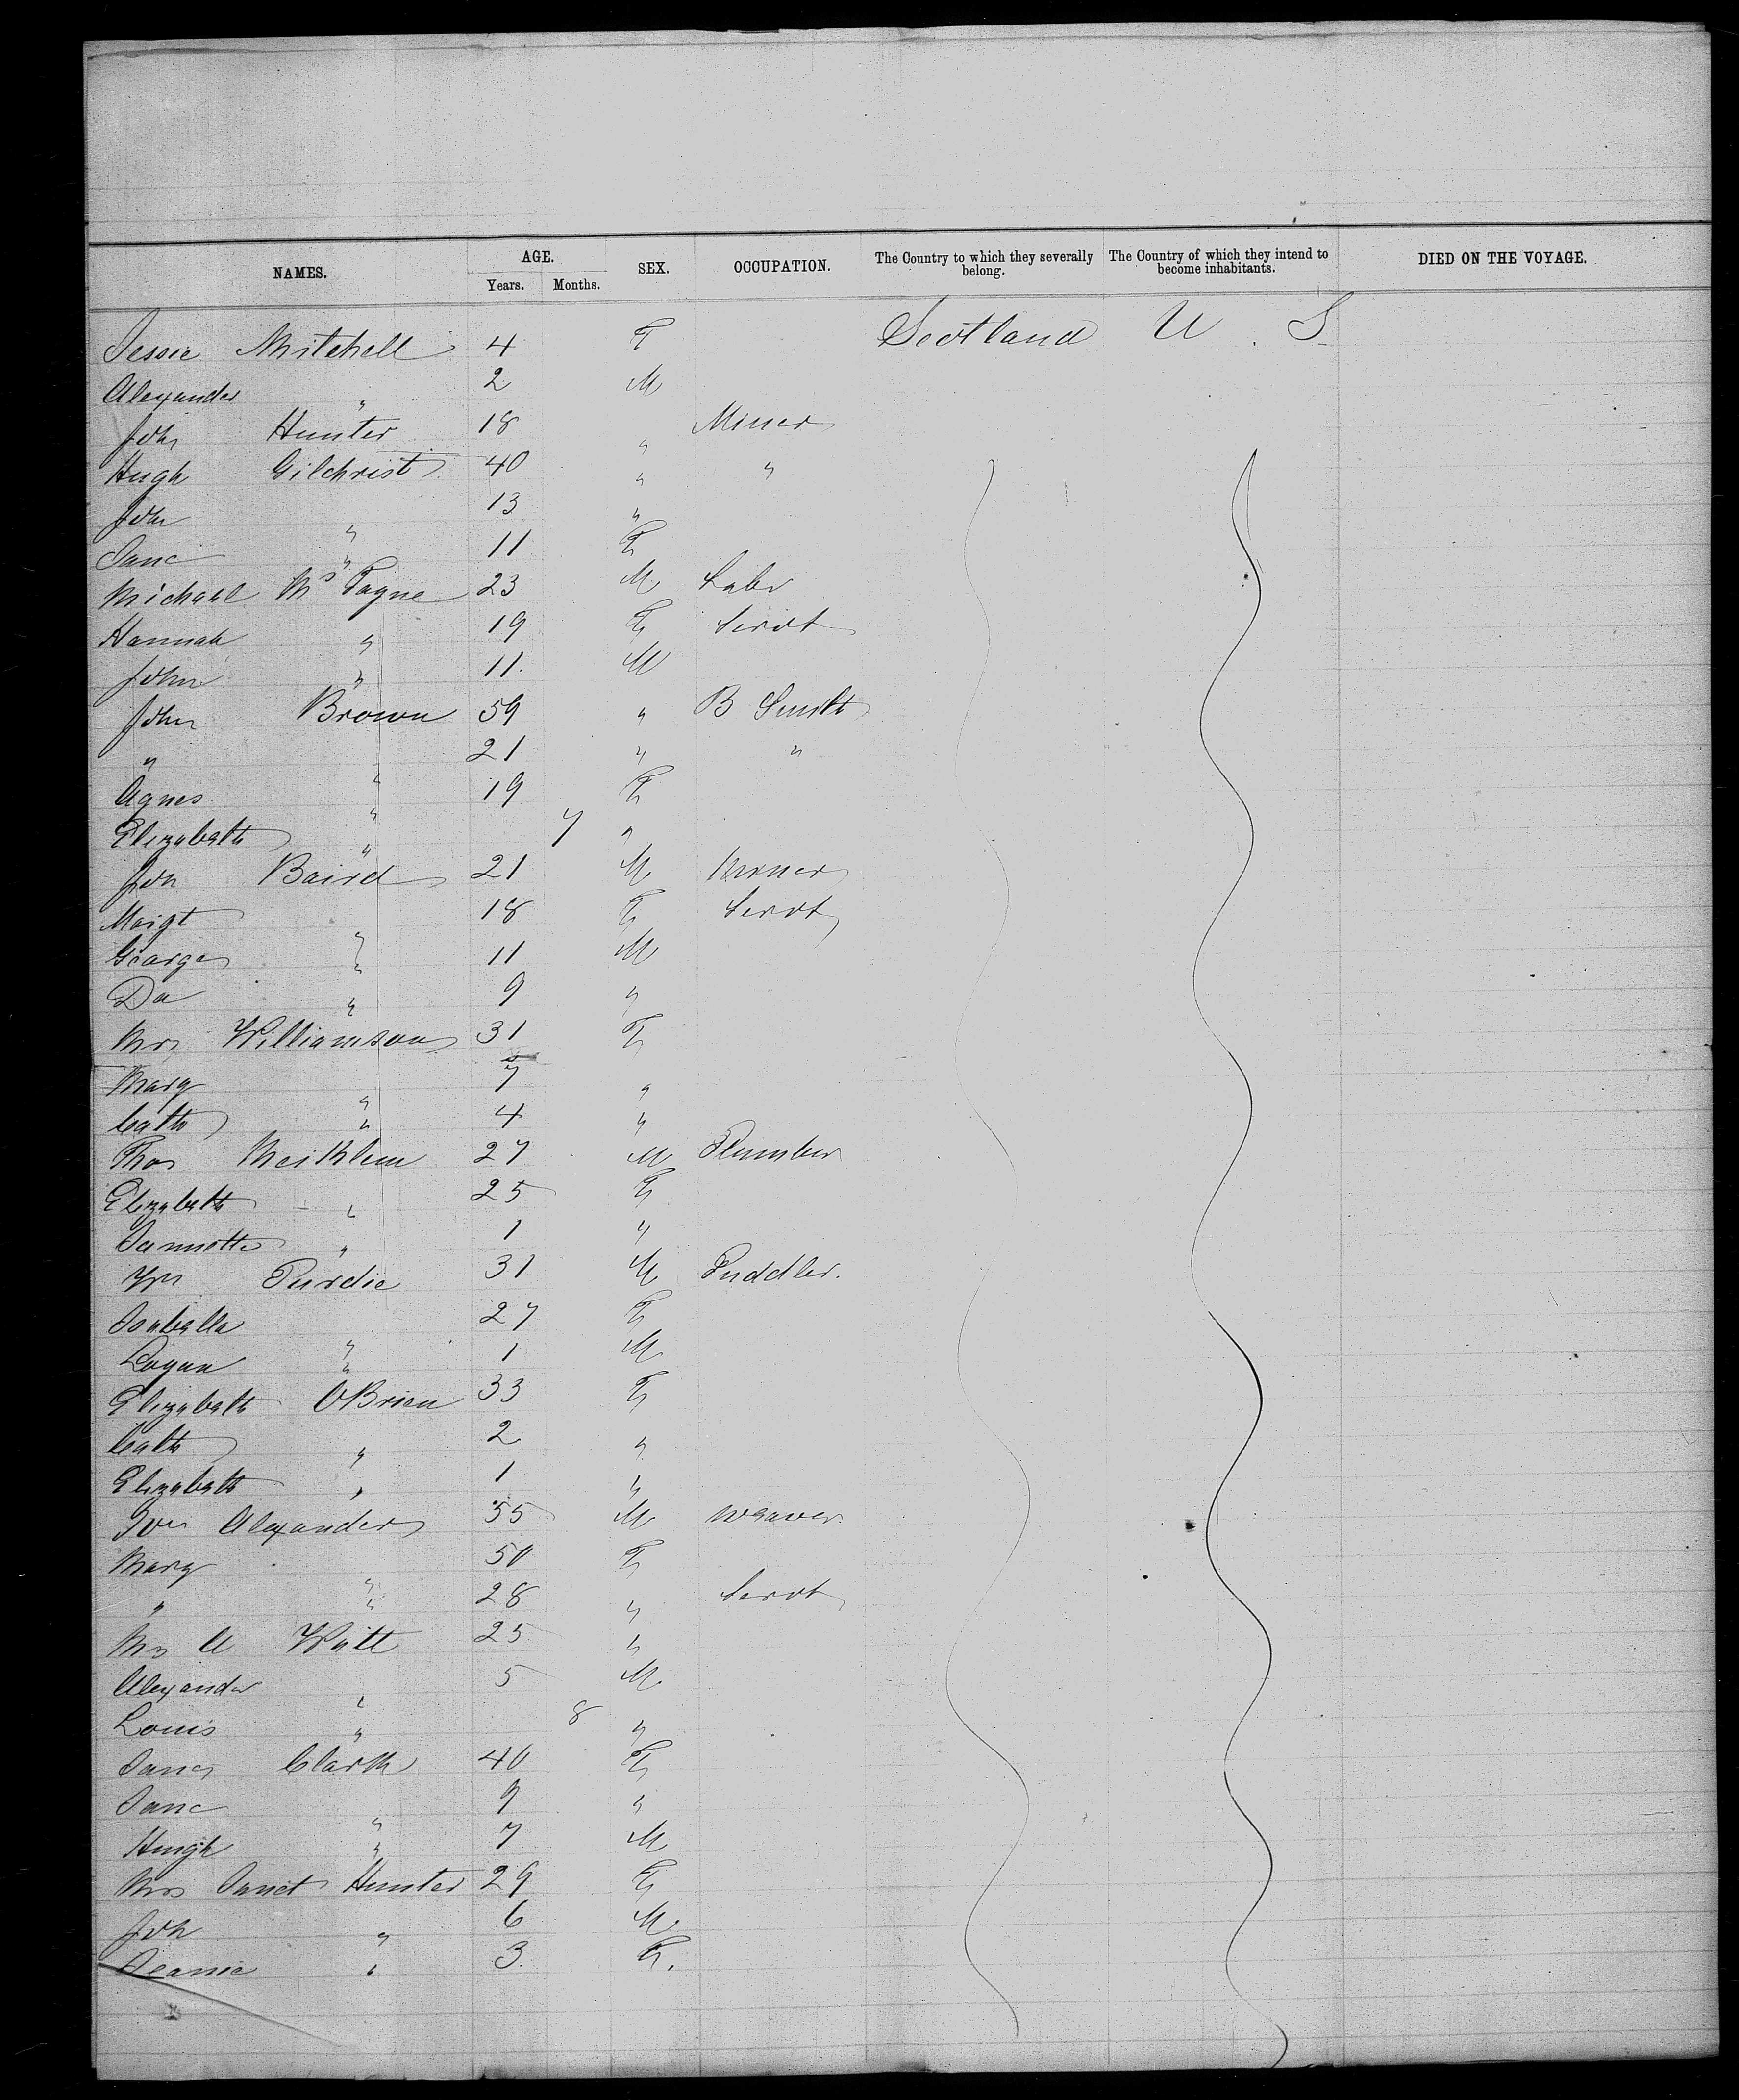 NAMES. AGE. SEX. OCCUPATION. The Country to which they severally belong. The Country of which they intend to become inhabitants. DIED ON THE VOYAGE.
Years. Months.
Jessie Mitchell 4 F Scotland U. S.
Alexander " 2 M
John Hunter 18 " Miner
Hugh Gilchrist 40 " "
John " 13 "
Jane " 11 F
Michael 23 M Labr
Hannah " 19 F Servt
John " 11 M
John Brown 59 " B Smith
" " 21 " "
Agnes " 19 F
Elizabeth " 7 "
Jon Baird 21 M Miner
Margt " 18 F Servt
George " 11 M
Da " 9 "
Mrs Williamson 31 F
Mary " 7 "
Cath " 4 "
Thos Meiklem 27 M Plumber
Elizabeth " 25 F
Jannette " 1 "
Wm Purdie 31 M Puddler.
Isabella " 27 F
Logan " 1 M
Elizabeth OBrien 33 F
Cath " 2 "
Elizabeth " 1 "
Alexander 55 M Weaver
Mary " 50 F
" " 28 " Servt
Mrs A Watt 25 "
Alexander " 5 M
Louis " 8 "
Jane Clark 40 F
Jane " 9 "
Hugh " 7 M
Mrs Janet Hunter 29 F
Joh " 6 M
Jeanie " 3 F.